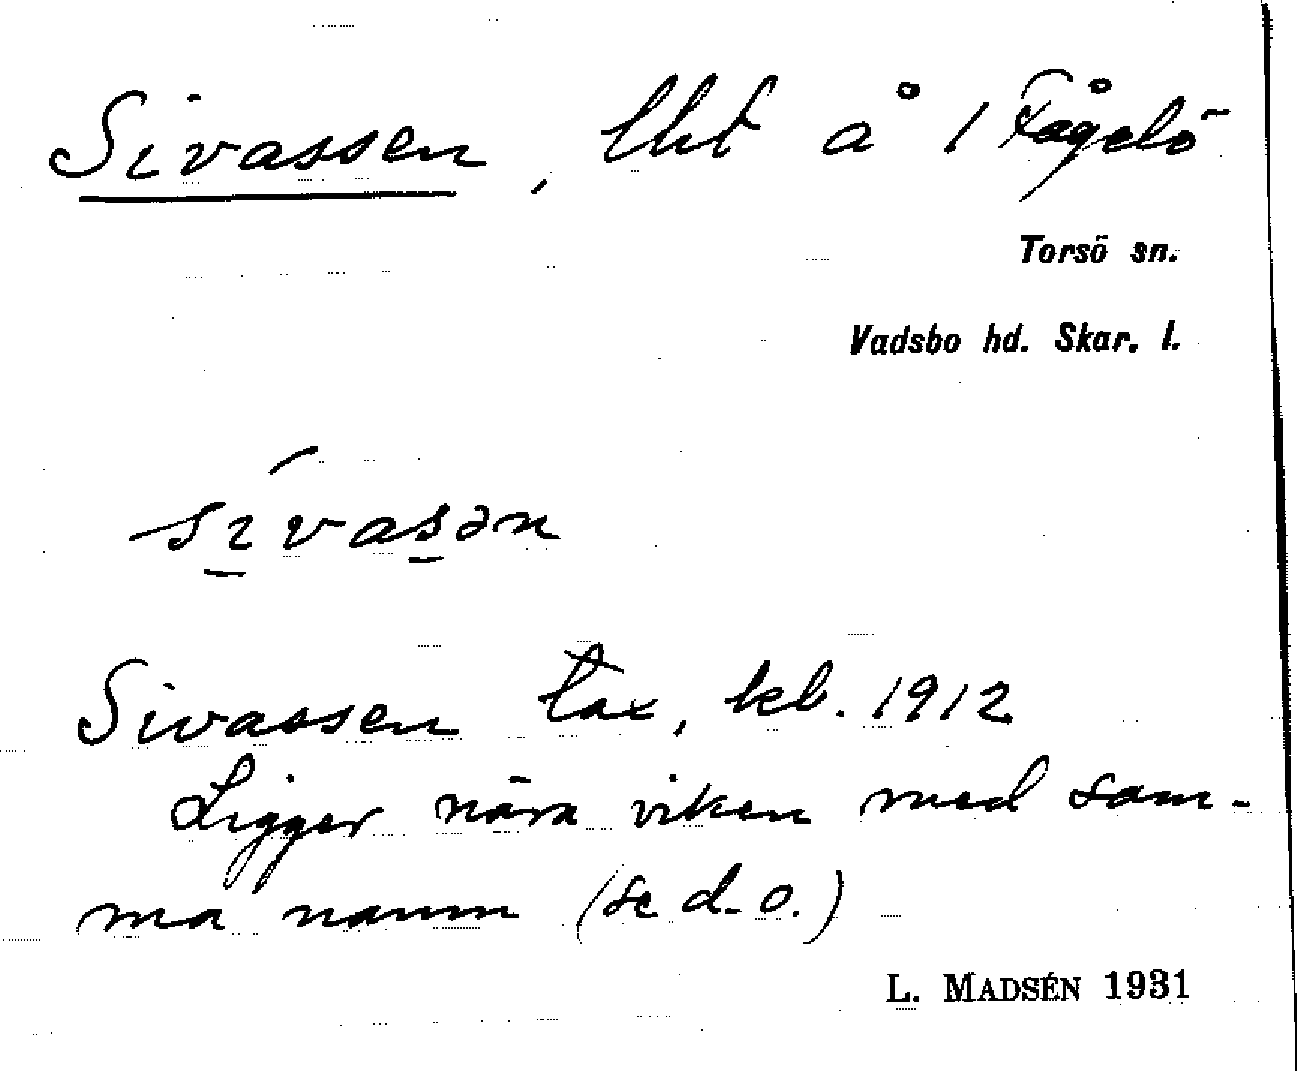 Sivassen, lht å 1 Fågelö
Torsö sn.
Vadsbo hd. Skar. l.
sivasən
Sivassen tax, kb. 1912
Ligger nära viken med sam-
ma namn (se d. o.)
L. MADSÉN 1931